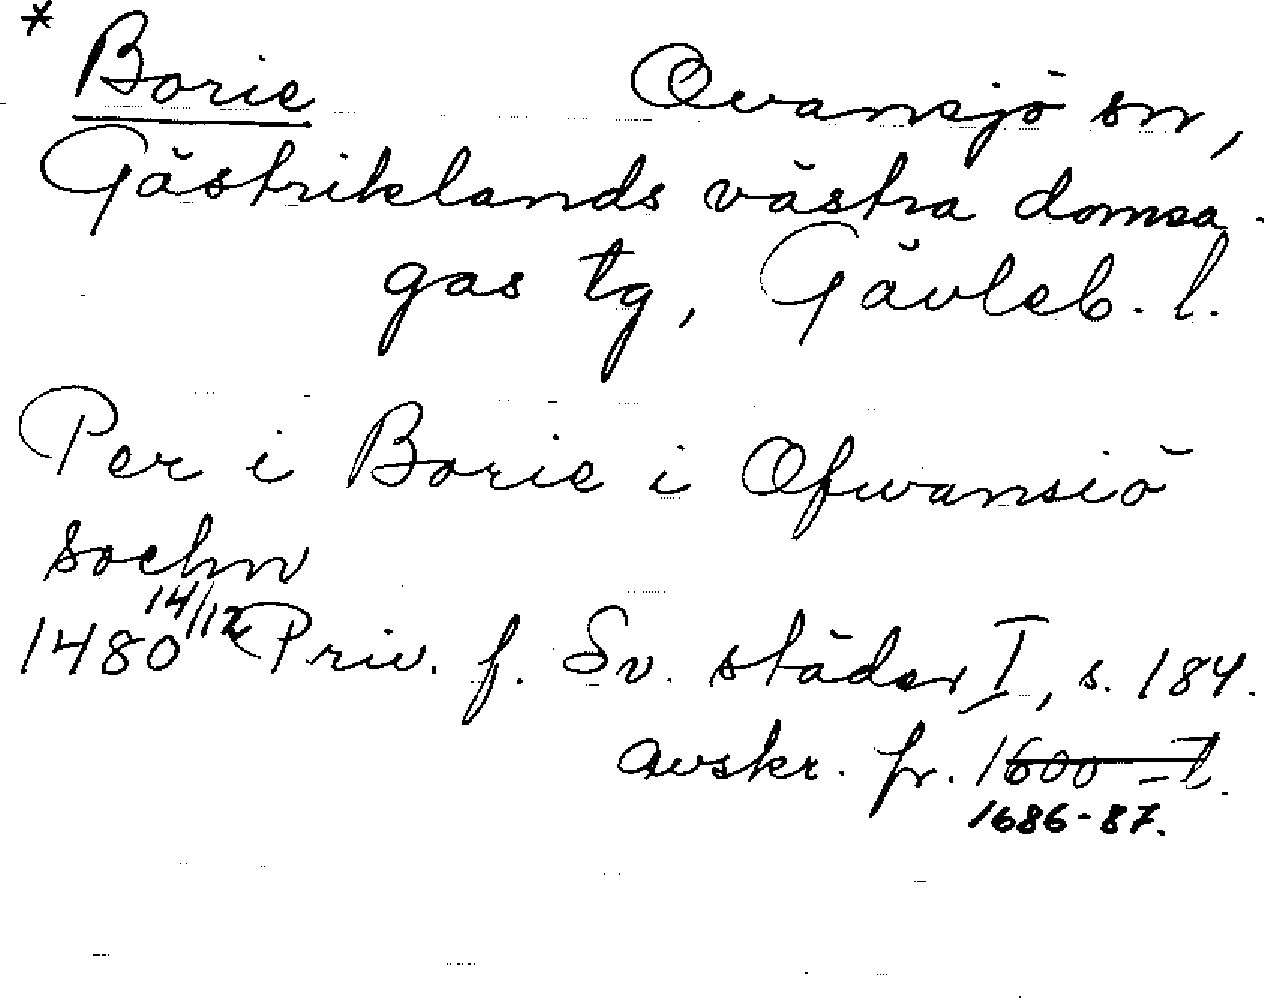 * Borie Ovansjö sn,
Gästriklands västra domsa.
gas tg, Gävleb. l.
Per i Borie i Ofwansiö
sochn
1480 14/12 Priv. f. Sv. städer I, s. 184.
avskr. fr. 1600-t.
1686-87.